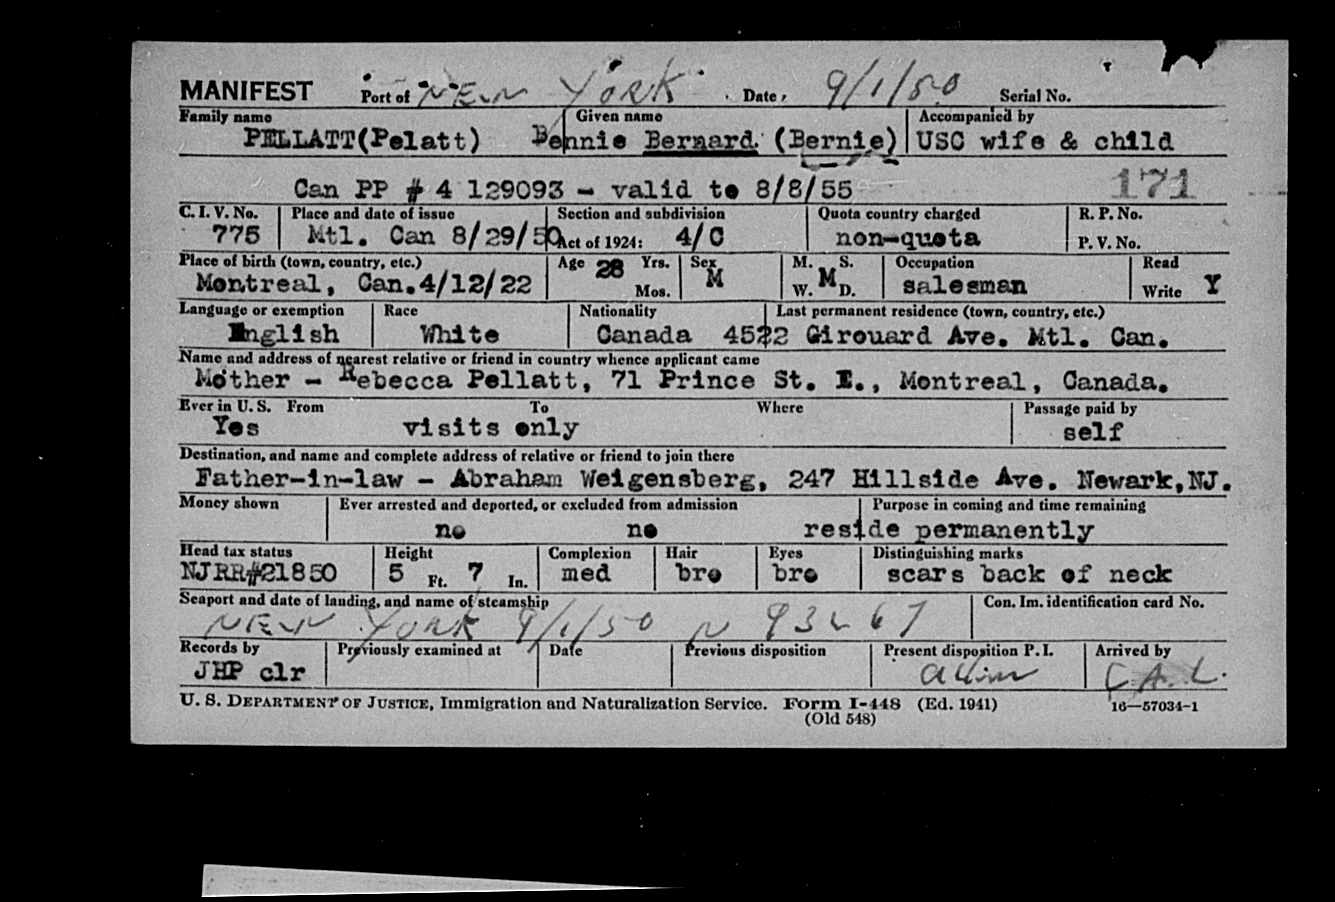 MANIFEST Port of NEW YORK Date 9/1/50 Serial No.
Family name Given name Accompanied by
PELLATT(Pelatt) Bennie Bernard (Bernie) USC wife & child
Can PP # 4 129093 - valid to 8/8/55 171
C. I. V. No. Place and date of issue Section and subdivision Quota country charged R. P. No.
775 Mtl. Can 8/29/50 Act of 1924: 4/C non-quota P. V. No.
Place of birth (town, country, etc.) Age 28 Yrs. Sex M. S. Occupation Read
Montreal, Can.4/12/22 Mos. M W. M D. salesman Write Y
Language or exemption Race Nationality Last permanent residence (town, country, etc.)
English White Canada 4522 Girouard Ave. Mtl. Can.
Name and address of nearest relative or friend in country whence applicant came
Mother - Rebecca Pellatt, 71 Prince St. E., Montreal, Canada.
Ever in U. S. From To Where Passage paid by
Yes visits only self
Destination, and name and complete address of relative or friend to join there
Father-in-law - Abraham Weigensberg, 247 Hillside Ave. Newark,NJ.
Money shown Ever arrested and deported, or excluded from admission Purpose in coming and time remaining
no no reside permanently
Head tax status Height Complexion Hair Eyes Distinguishing marks
NJRR#21850 5 Ft. 7 In. med bro bro scars back of neck
Seaport and date of landing, and name of steamship Con. Im. identification card No.
NEW YORK 9/1/50 N 93267
Records by Previously examined at Date Previous disposition Present disposition P. I. Arrived by
JHP clr C.A.L.
U. S. DEPARTMENT OF JUSTICE, Immigration and Naturalization Service. Form I-448 (Ed. 1941) 16—57034-1
(Old 548)